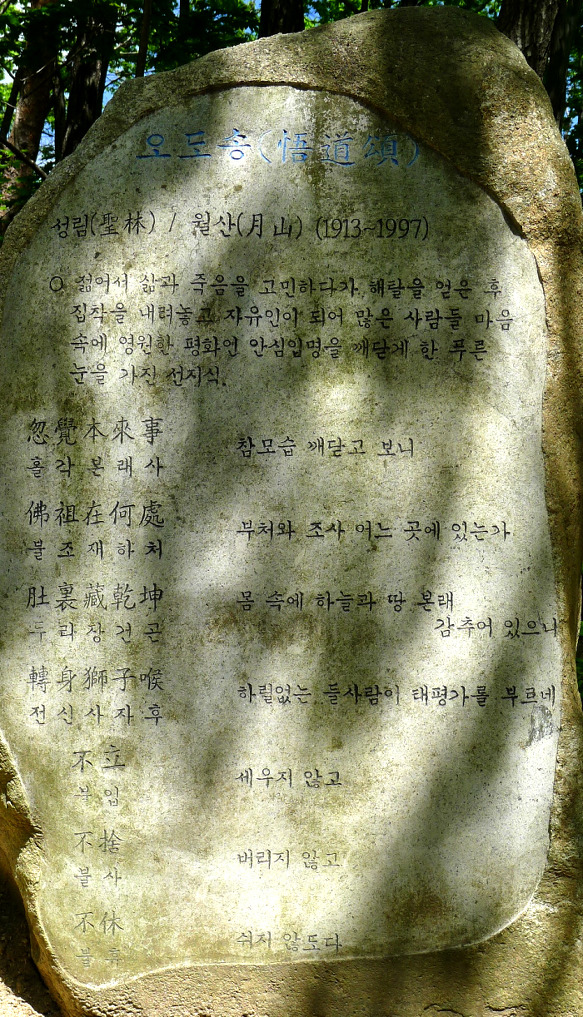 오도송(悟道頌)
성림(聖林) / 월산(月山) (1913~1997)
○ 젊어서 삶과 죽음을 고민하다가 해탈을 얻은 후
집착을 내려놓고 자유인이 되어 많은 사람들 마음
속에 영원한 평화언 안심입명을 깨닫게 한 푸른
눈을 가진 선지식.
忽覺本來事 참모습 깨닫고 보니
홀각본래사
佛祖在何處 부처와 조사 어느 곳에 있는가
불조재하처
肚裏藏乾坤 몸 속에 하늘과 땅 본래
두리장건곤 감추어 있으니
轉身獅子喉 하릴없는 들사람이 태평가를 부르네
전신사자후
不立 세우지 않고
부입
不捨 버리지 않고
불사
不休 쉬지 않도다
불휴